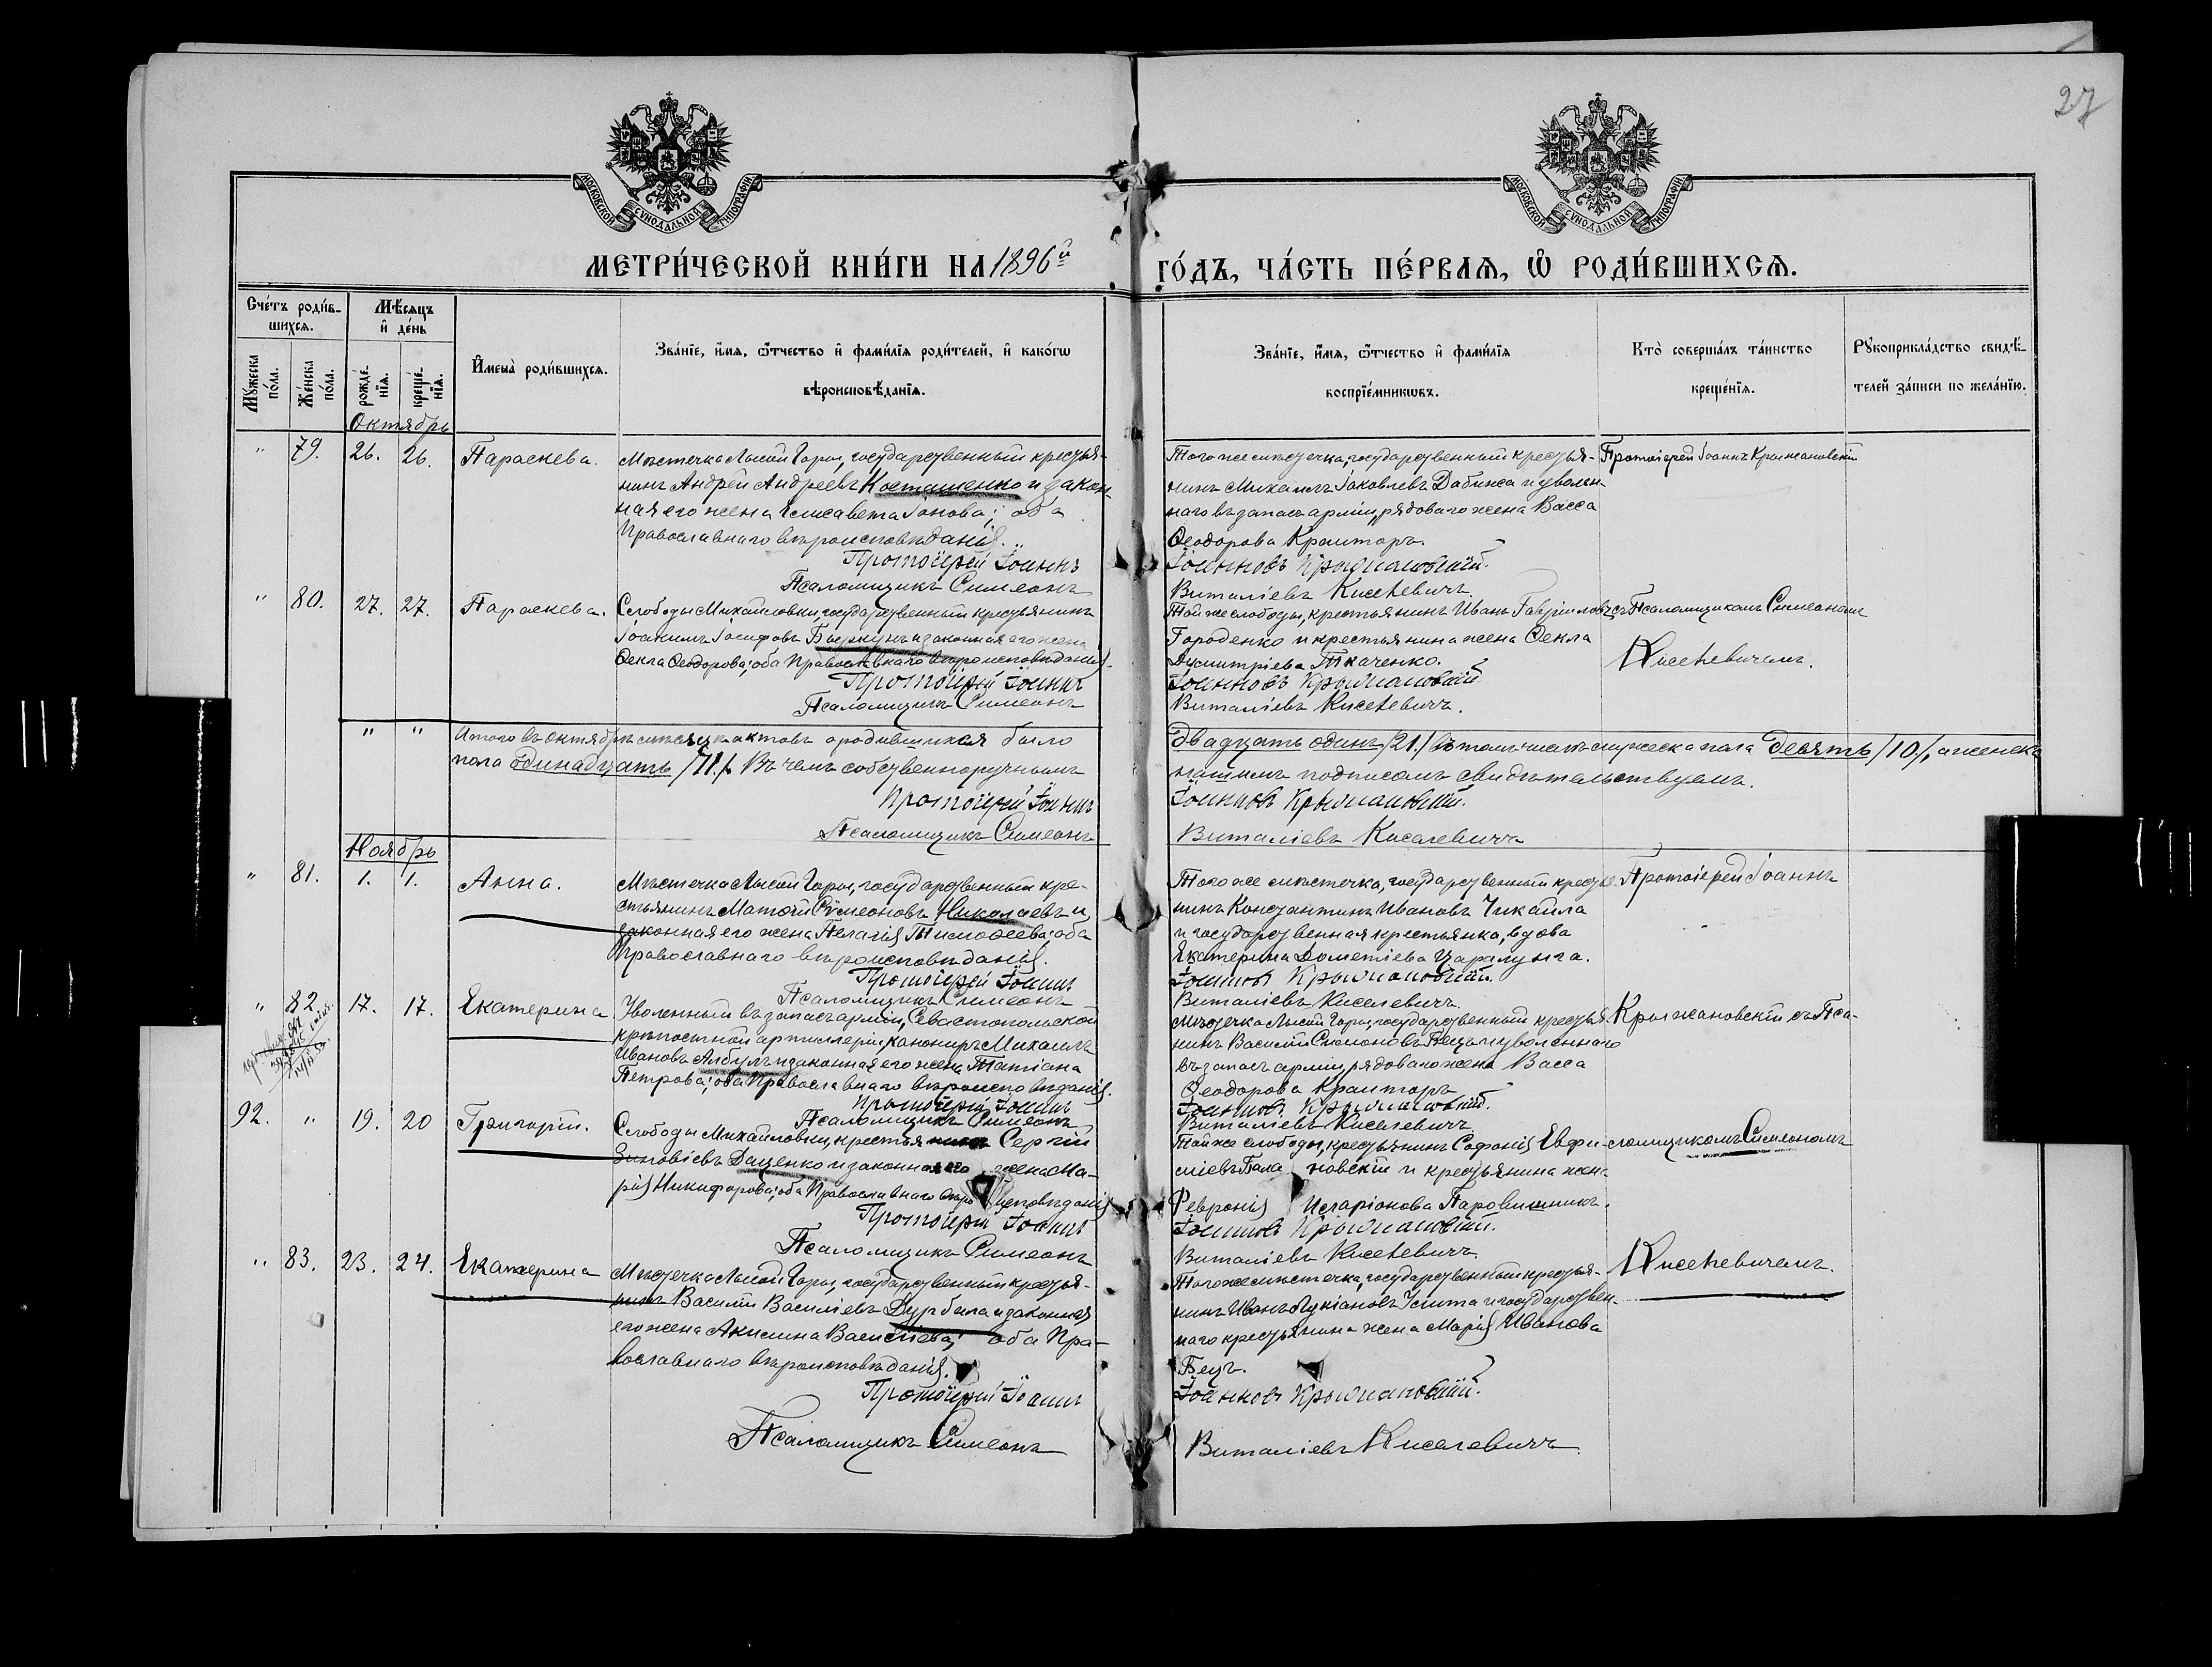 27
МОСКОВСКОЙ СѴНОДАЛЬНОЙ ТИПОГРАФІИ
МОСКОВСКОЙ СѴНОДАЛЬНОЙ ТИПОГРАФІИ
МЕТРИ́ЧЕСКОЙ КНИ́ГИ НА 1896й ГО́ДЪ, ЧА́СТЬ ПЕ́РВАЯ, Ѡ РОДИ́ВШИХСЯ.
Сче́тъ роди́в-
шихся.
Мѣ́сяцъ
и де́нь
Му́жеска
по́ла.
Же́нска
по́ла.
рожде́-
нїя.
креще́-
нїя.
И҆мена̀ роди́вшихся.
Зва́нїе, и҆́мя, ѻ҆́тчество и҆ фами́лїя роди́телей, и҆ како́гѡ
вѣроисповѣ́данїя.
Зва́нїе, и҆́мя, ѻ҆́тчество и҆ фами́лїя
воспрїе́мникѡвъ.
Кто̀ соверша́лъ та́инство
креще́нїя.
Рꙋкоприкла́дство свидѣ́-
телей за́писи по жела́нїю.
Октябрь
" 79. 26. 26. Параскева.
Мѣстечка Лысой Горы, государственный крестья-
нинъ Андрей Андреевъ Косташенко и закон-
ная его жена Елисавета Іонова; оба
Православнаго вѣроисповѣданія.
Протоіерей Іоаннъ
Псаломщикъ Симеонъ
Того же мѣстечка, государственный крестья-
нинъ Михаилъ Іаковлевъ Дабижа и уволен-
наго въ запасъ арміи, рядоваго жена Васса
Ѳеодорова Крашторъ.
Іоанновъ Крыжановскій.
Виталіевъ Киселевичъ.
Протоіерей Іоаннъ Крыжановскій
" 80. 27. 27. Параскева.
Слободы Михайловки, государственный крестьянинъ
Іоакимъ Іосифовъ и законная его жена
Ѳекла Ѳеодорова; оба Православнаго вѣроисповѣданія.
Протоіерей Іоаннъ
Псаломщикъ Симеонъ
Той же слободы, крестьянинъ Иванъ Гавріиловъ
Городенко и крестьянина жена Ѳекла
Димитріева Ткаченко.
Іоанновъ Крыжановскій
Виталіевъ Киселевичъ.
съ Псаломщикомъ Симеономъ
Киселевичемъ.
" " Итого въ октябрѣ мѣсяцѣ актовъ о родившихся было двадцать одинъ /21./ въ томъ числѣ мужеска пола девять /10/, а женска
пола одинадцать /11./ Въ чемъ собственноручнымъ нашимъ подписомъ свидѣтельствуемъ.
Протоіерей Іоаннъ Іоанновъ Крыжановскій.
Псаломщикъ Симеонъ Виталіевъ Киселевичъ
Ноябрь
" 81. 1. 1. Анна.
Мѣстечка Лысой Горы, государственный кре-
стьянинъ Матѳей Сѵмеоновъ Николаевъ и
законная его жена Пелагія Тимоѳеева; оба
Православнаго вѣроисповѣданія.
Протоіерей Іоаннъ
Псаломщикъ Симеонъ
Того же мѣстечка, государственный крестья-
нинъ Константинъ Ивановъ Чикайла
и государственная крестьянка, вдова
Екатерина Дометіева Царалунга.
Іоанновъ Крыжановскій.
Виталіевъ Киселевичъ.
Протоіерей Іоаннъ
" 82 17. 17. Екатерина
Уволенный въ запасъ арміи, Севастопольской
крѣпостной артиллеріи, канониръ Михаилъ
Ивановъ Албулъ и законная его жена Татіана
Петрова; оба Православнаго вѣроисповѣданія.
Протоіерей Іоаннъ
Псаломщикъ Симеонъ
Мѣстечка Лысой Горы, государственный крестья-
нинъ Василій Симоновъ Бецъ и уволеннаго
въ запасъ арміи рядоваго жена Васса
Ѳеодорова Крашторъ
Іоанновъ Крыжановскій.
Виталіевъ Киселевичъ
Крыжановскій съ Пса-
92. " 19. 20 Григорій.
Слободы Михайловки, крестьянинъ Сергій
Зиновіевъ Даценко и законная его жена Ма-
рія Никифорова; оба Православнаго вѣроисповѣданія
Протоіерей Іоаннъ
Псаломщикъ Симеонъ
Той же слободы, крестьянинъ Софоній Евфи-
міевъ новскій и крестьянина жена
Февронія Иларіонова
Іоанновъ Крыжановскій.
Виталіевъ Киселевичъ.
ломщикомъ Симеономъ
" 83. 23. 24. Екатерина
Мѣстечка Лысой Горы, государственный крестья-
нинъ Василій Василіевъ Дурбала и законная
его жена Акилина Василіева; оба Пра-
вославнаго вѣроисповѣданія.
Протоіерей Іоаннъ
Псаломщикъ Симеонъ
Того же мѣстечка, государственный крестья-
нинъ Иванъ Лукіановъ и государствен-
наго крестьянина жена Марія Иванова
Бецъ.
Іоанновъ Крыжановскій.
Виталіевъ Киселевичъ.
Киселевичемъ.